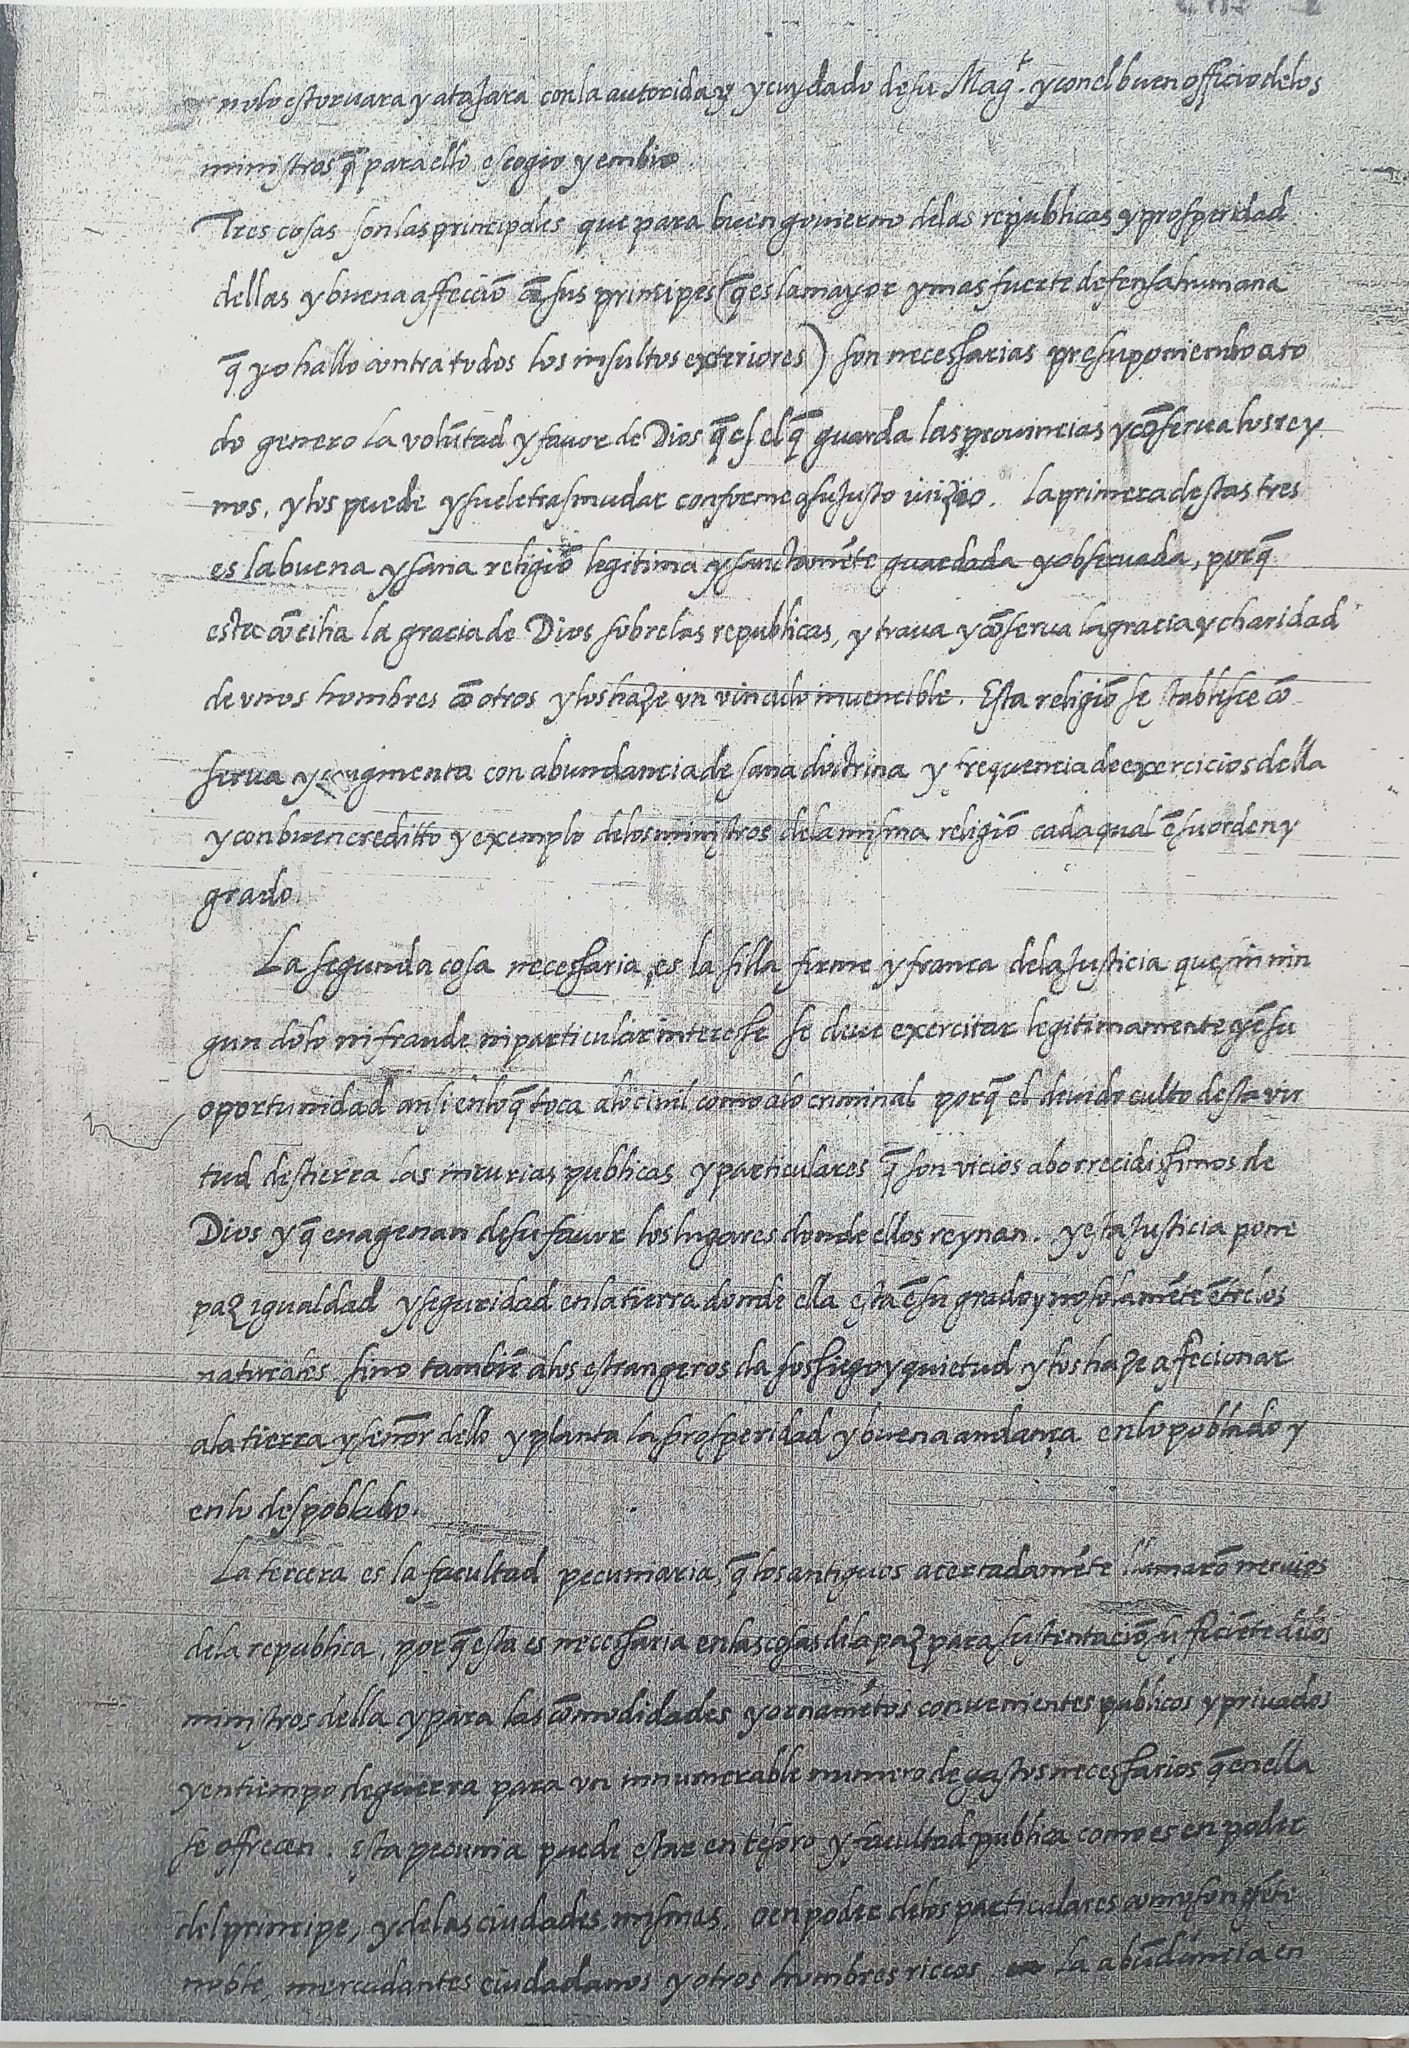 nolo estoruara y atajara con la autoridad y cuydado de su Mag.t y con el buen officio de los
ministros q̃ para ello escogio y embio.
Tres cosas son las principales que para buen gouierno de las republicas y prosperidad
dellas y buena affecciõ cõ sus principes (q̃ es la mayor y mas fuerte defensa humana
q̃ yo hallo contra todos los insultos exteriores) son necessarias presuponiendo a to
do genero la volũtad y fauor de Dios q̃ es el q̃ guarda las prouincias y cõserua los rey
nos, y los puede y suele trasmudar conforme a su justo iuizio. La primera destas tres
es la buena y sana religiõ legitima y sanctamẽte guardada y obseruada, porq̃
esta cõcilia la gracia de Dios sobre las republicas, y traua y cõserua la gracia y charidad
de unos hombres cõ otros y los haze un vinculo inuencible. Esta religiõ se stablisce cõ
serua y augmenta con abundancia de sana doctrina y frequencia de exercicios della
y con buen creditto y exemplo de los ministros de la misma religiõ cada qual ẽ su orden y
grado.
La segunda cosa necessaria, es la silla firme y franca de la Justicia que sin nin
gun dolo ni fraude ni particular interesse se deue exercitar legitimamente y ẽ su
oportunidad ansi en lo q̃ toca a lo ciuil como a lo criminal porq̃ el deuido culto desta vir
tud destierra las iniurias publicas y particulares q̃ son vicios aborrecidissimos de
Dios y q̃ enagenan de su fauor los lugares donde ellos reynan. y esta Justicia pone
paz igualdad y seguridad en la tierra donde ella esta ẽ su grado y no solamẽte ẽtre los
naturales sino tambiẽ a los estrangeros da sossiego y quietud y los haze affecionar
a la tierra y señor dello y planta la prosperidad y buena andança en lo poblado y
en lo despoblado.
La tercera es la facultad pecuniaria, q̃ los antiguos acertadamẽte llamarõ neruios
de la republica, porq̃ esta es necessaria en las cosas de la paz para sustentaciõ suficiẽte de los
ministros della y para las cõmodidades y ornamẽtos conuenientes publicos y priuados
y en tiempo de guerra para un innumerable numero de gastos necessarios q̃ en ella
se offrecen. Esta pecunia puede estar en tesoro y facultad publica como es en poder
del principe, y de las ciudades mismas, o en poder de los particulares como son
noble, mercadantes ciudadanos y otros hombres riccos la abũdancia en